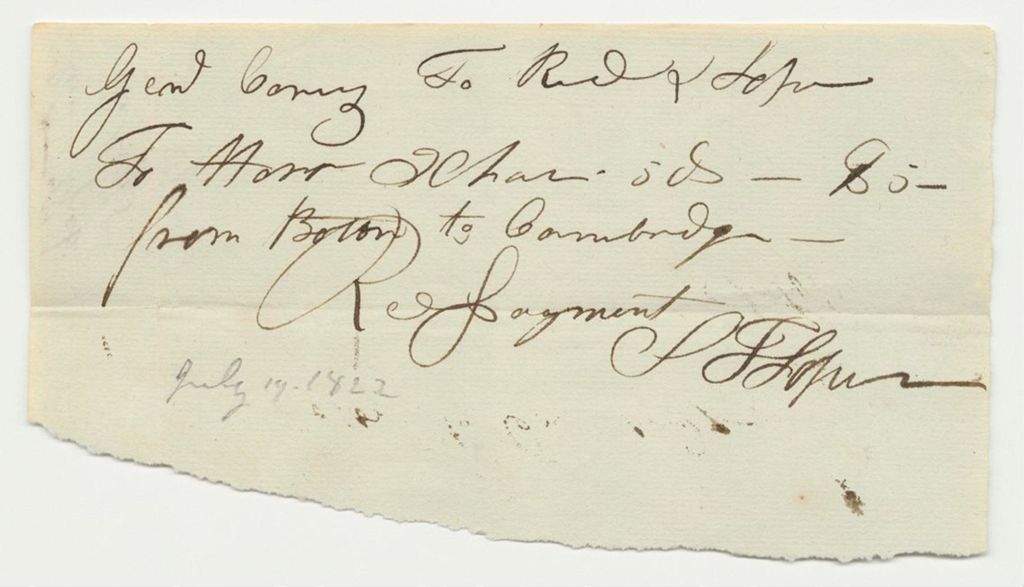 Genl Coney To Red & Loper
To Horse & Chas. 5 ds — $5 —
from Boton to Cambridge —
Rec payment
S F Loper
July 19. 1822